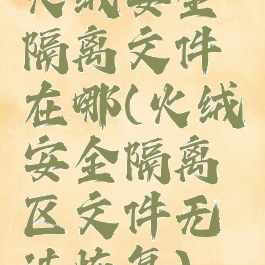 火绒安全
隔离文件
在哪(火绒
安全隔离
区文件无
法恢复)